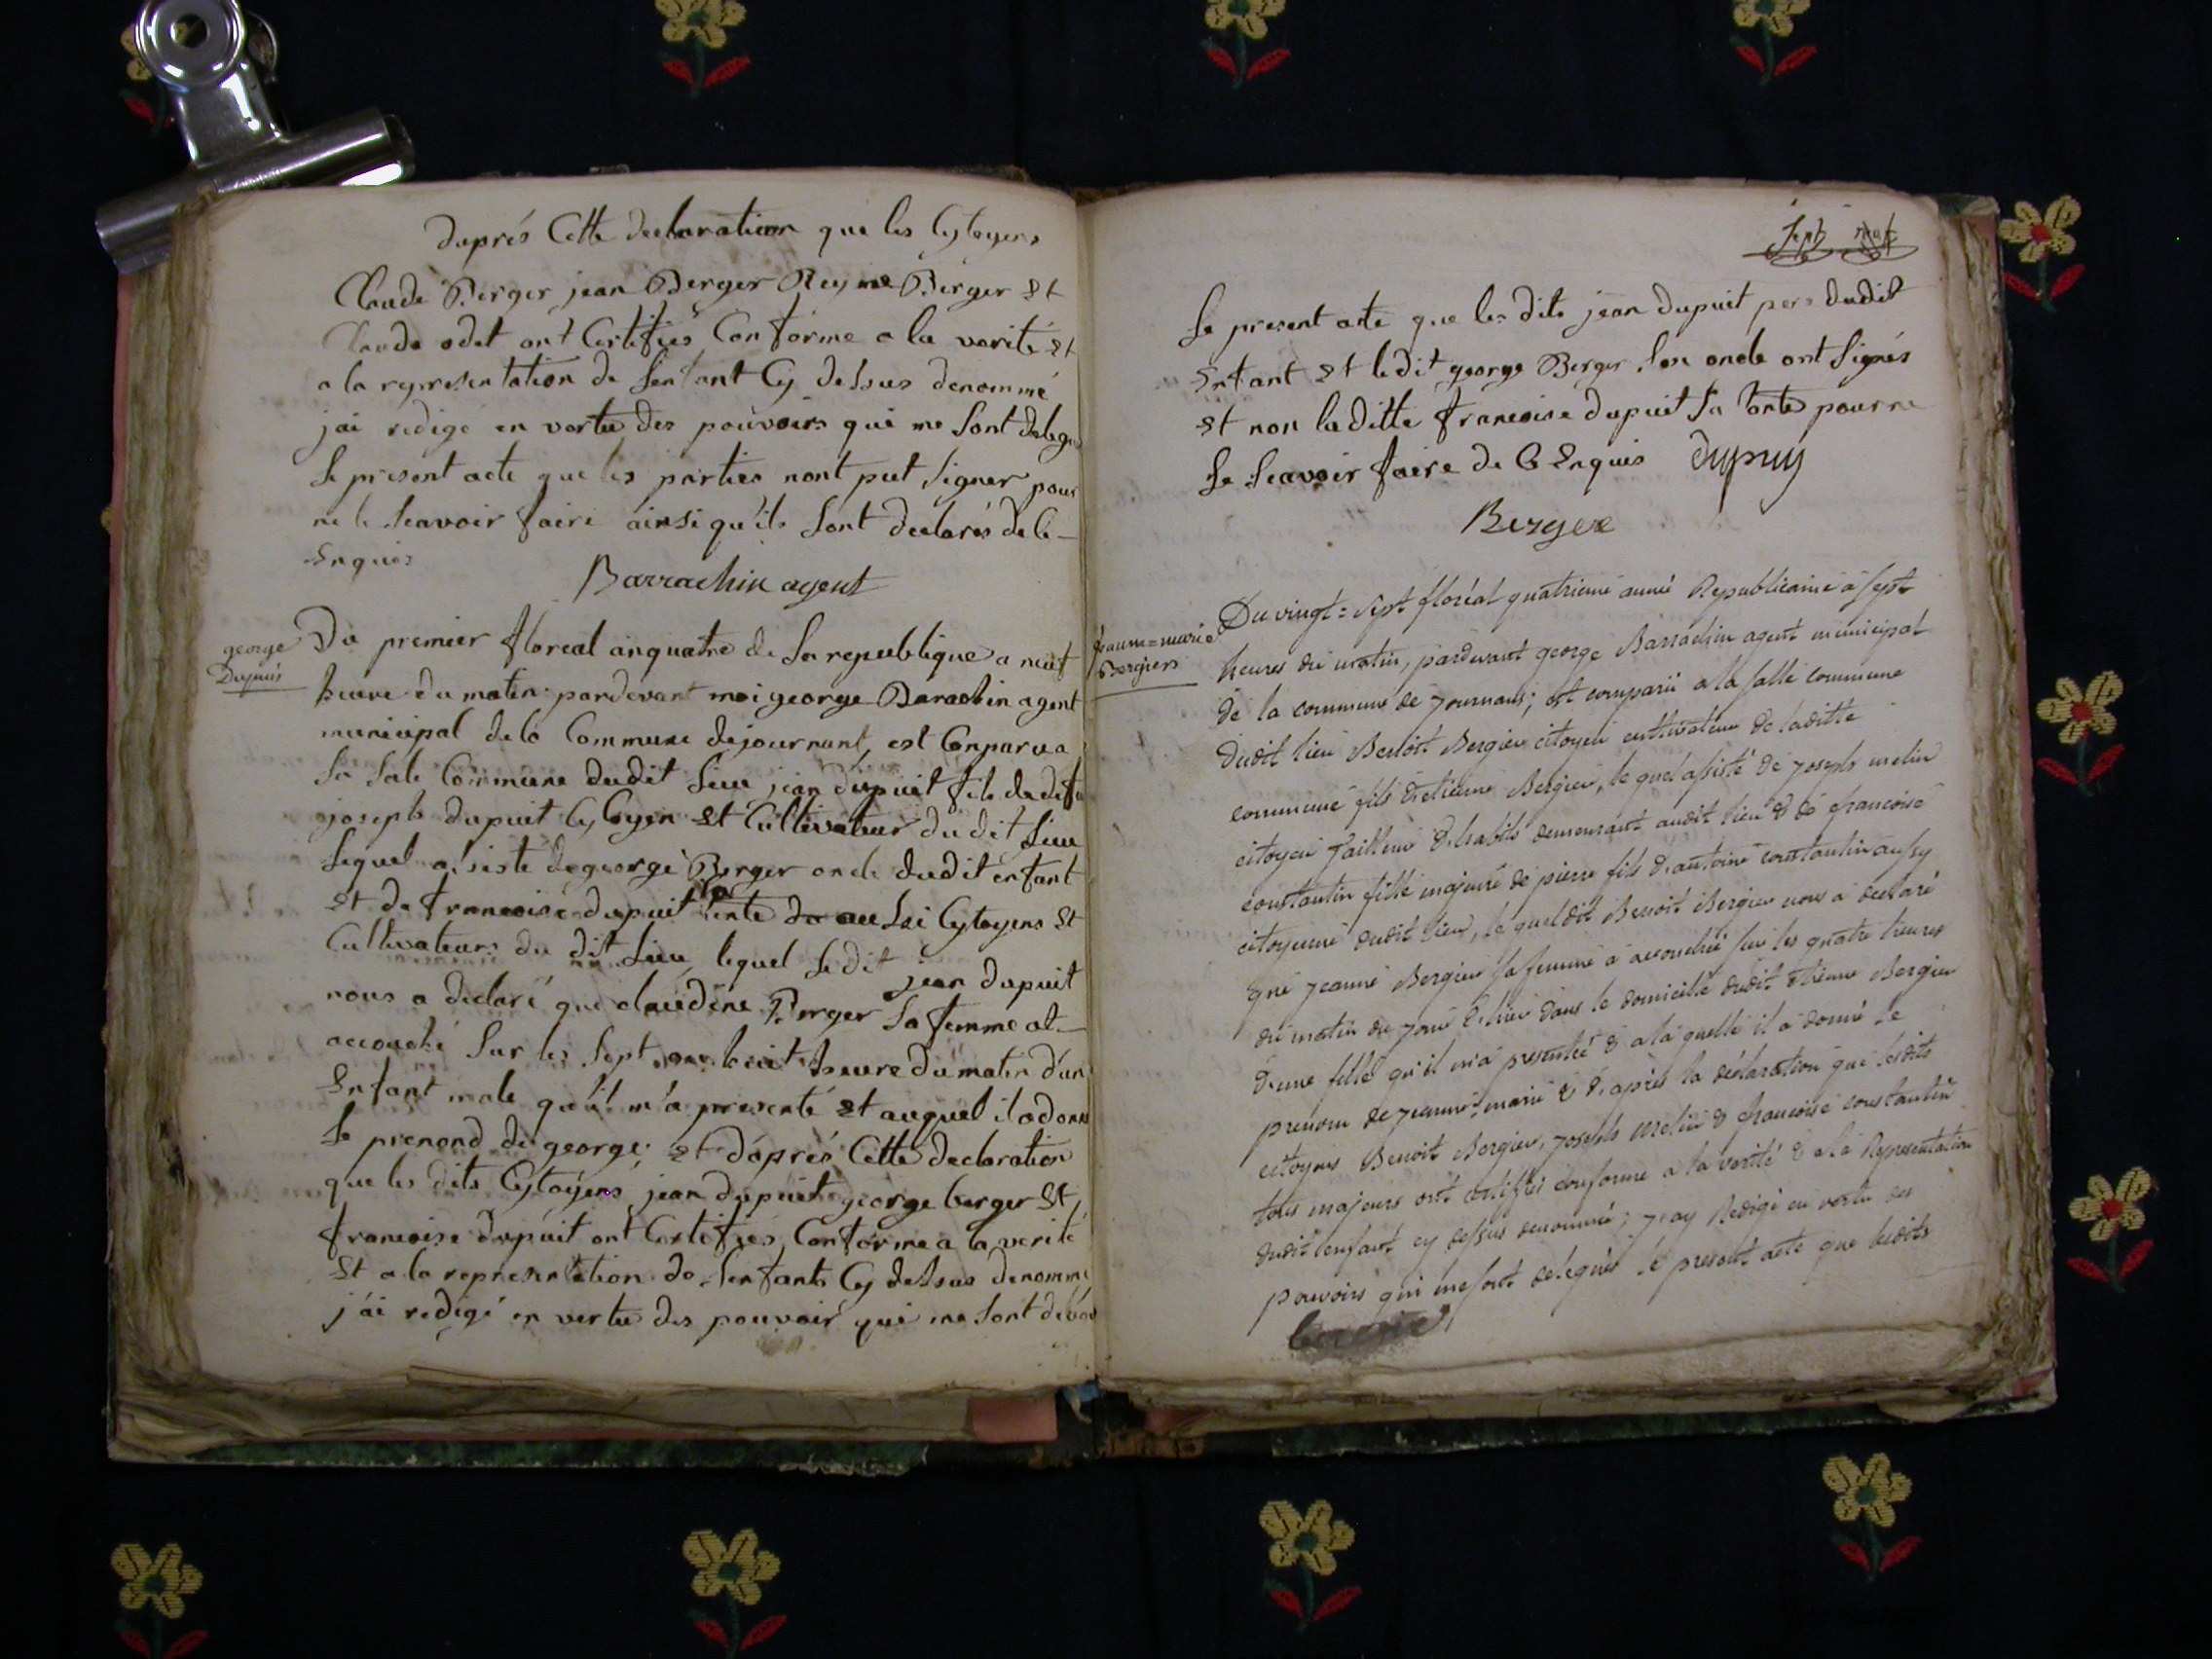 daprés Cette declaration que les Cytoyens
Claude Berger jean Berger Reyne Berger et
Claude odet ont Certifiés Conforme a la verité et
a la representation de lenfant Cy dessus denommé
jai redigé en vertu des pouvoirs qui me sont delegu
le present acte que les parties nont put signer pour
ne le scavoir faire ainsi qu'ils sont declarés de ce
enquis
Barrachin agent
george
Dupuis
Du premier floreal an quatre de la republique a neuf
heure du matin pardevant moi george Barachin agent
municipal de la Commune de journant, est Conparu a
la sale Commune dudit lieu jean dupuit fils de defu
joseph dupuit Cytoyen et Cultivateur du dit lieu
lequel assiste de george Berger oncle dudit enfant
et de francoise dupuit sa tente aussi Cytoyens et
Cultivateurs du dit lieu lequel ledit jean dupuit
nous a declaré que claudine Berger sa femme at
accouché sur les sept ou huit heure du matin d'un
enfant male qu'il m'a presenté et auquel il a donné
le prenond de george et d'aprés Cette declaration
que les dits Cytoyens jean dupuit george berger et
francoise dupuit ont Certifiés Conforme a la verité
et a la representation de lenfant Cy dessus denommé
j'ai redigé en vertu des pouvoir qui me sont
sept
le present acte que les dits jean dupuit pere dudit
enfant et ledit george Berger son oncle ont signés
et non laditte francoise dupuit sa tante pour ne
le scavoir faire de Ce enquis dupuy
Berger
jeanne=marie
Bergier
Du vingt=sept floréal quatrieme année Republicaine à sept
heures du matin, pardevant george Barrachin agent municipal
de la commune de journans; est comparu a la salle commune
dudit lieu Benoit Bergier citoyen cultivateur de laditte
commune fils d'etienne Bergier, le quel assisté de joseph melin
citoyen Tailleur d'habits demeurant audit lieu & de francoise
constantin fille majeure de pierre fils d'antoine constantin aussy
citoyenne dudit lieu, le quel dit Benoit Bergier nous a declaré
que jeanne Bergier sa femme a accouchée sur les quatre heures
du matin du jour d'hier dans le domicille dudit etienne Bergier
d'une fille qu'il m'a presentée & a la quelle il a donné le
prenom de jeanne=marie & d'après la déclaration que lesdits
citoyens Benoit Bergier, joseph melin & francoise constantin
tous majeurs ont certiffiés conforme a la verité & a la Representation
dudit enfant cy dessus denommé; j'ay Redigé en vertu des
pouvoirs qui me sont delegués le present acte que lesdits